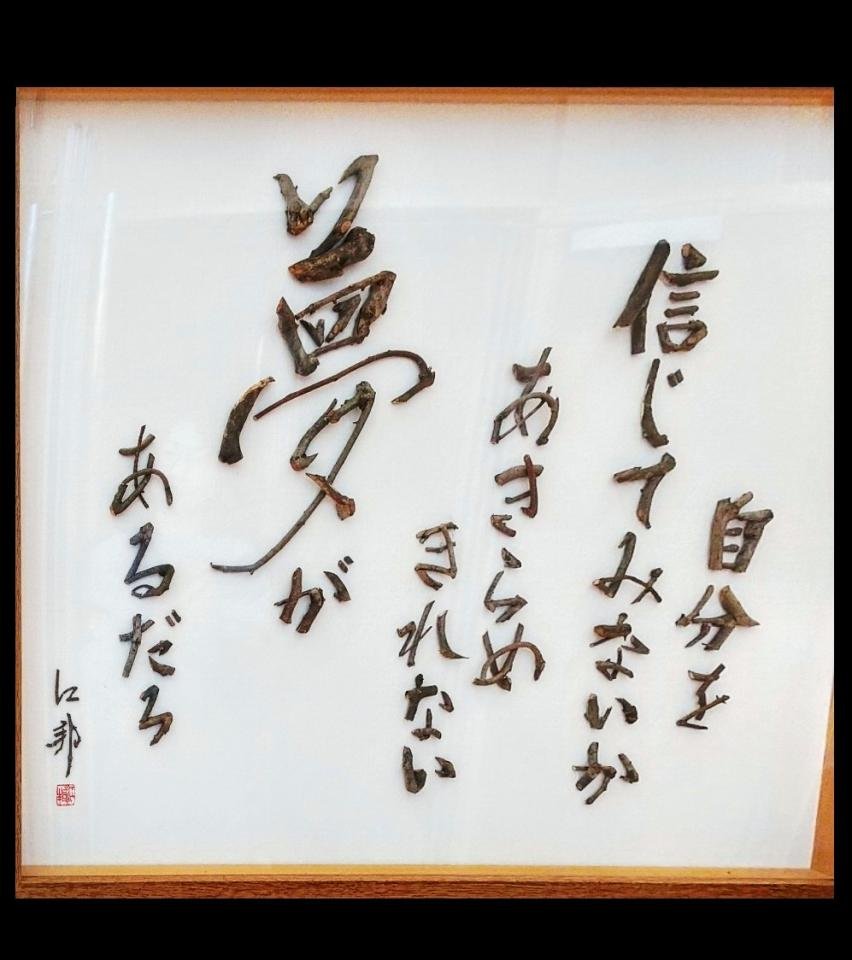 自分を
信じてみないか
あきらめ
きれない
夢が
あるだろ